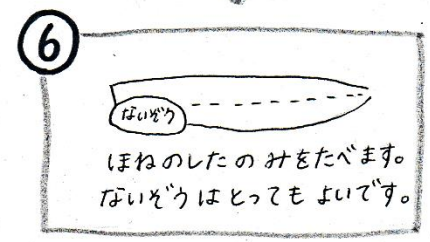 ⑥
ないぞう
ほねのしたのみをたべます。
ないぞうはとってもよいです。